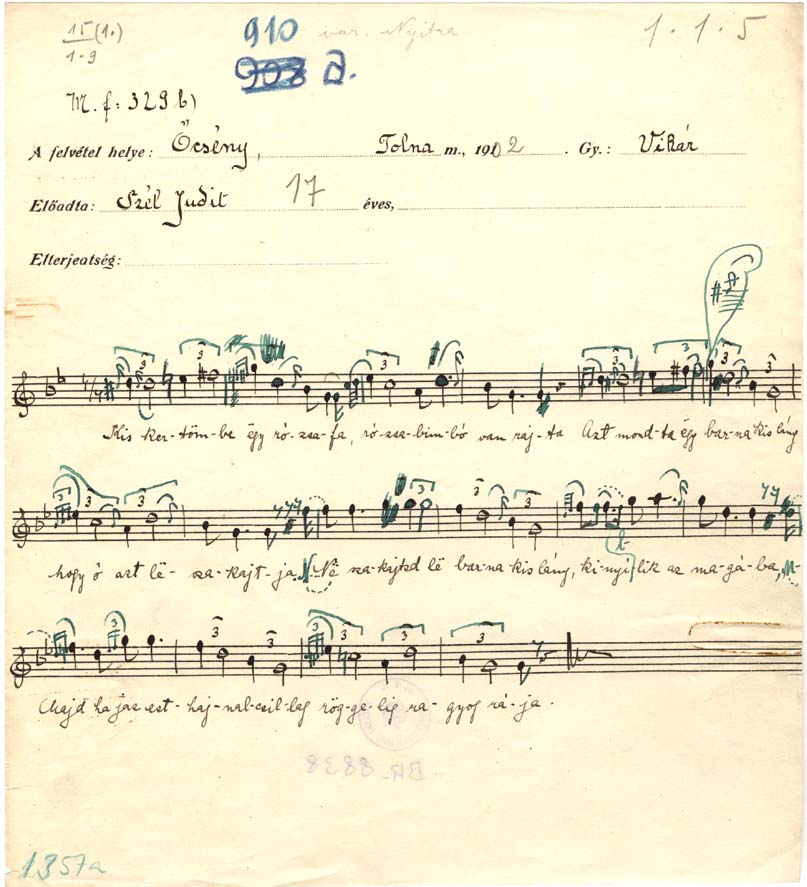 15(1.)
1-9
910 var. Nyitra
1. 1. 5
908 a.
M. f: 329 b)
A felvétel helye: Őcsény, Tolna m., 1902. Gy.: Vikár
Előadta: Szél Judit 17 éves,
Elterjedtség:
Kis ker-töm-be ëgy ró-zsa-fa, ró-zsa-bim-bó van raj-ta Azt mond-ta ëgy bar-na kis lány
hogy ő azt lë-sza-kajt-ja. Në sza-kijtsd lë bar-na kis lány, ki-nyí-lik az ma-gá-ba, M-
Majd ha jaz est-haj-nal-csil-lag rög-ge-lig ra-gyog rá-ja.
BR 8838
1357a